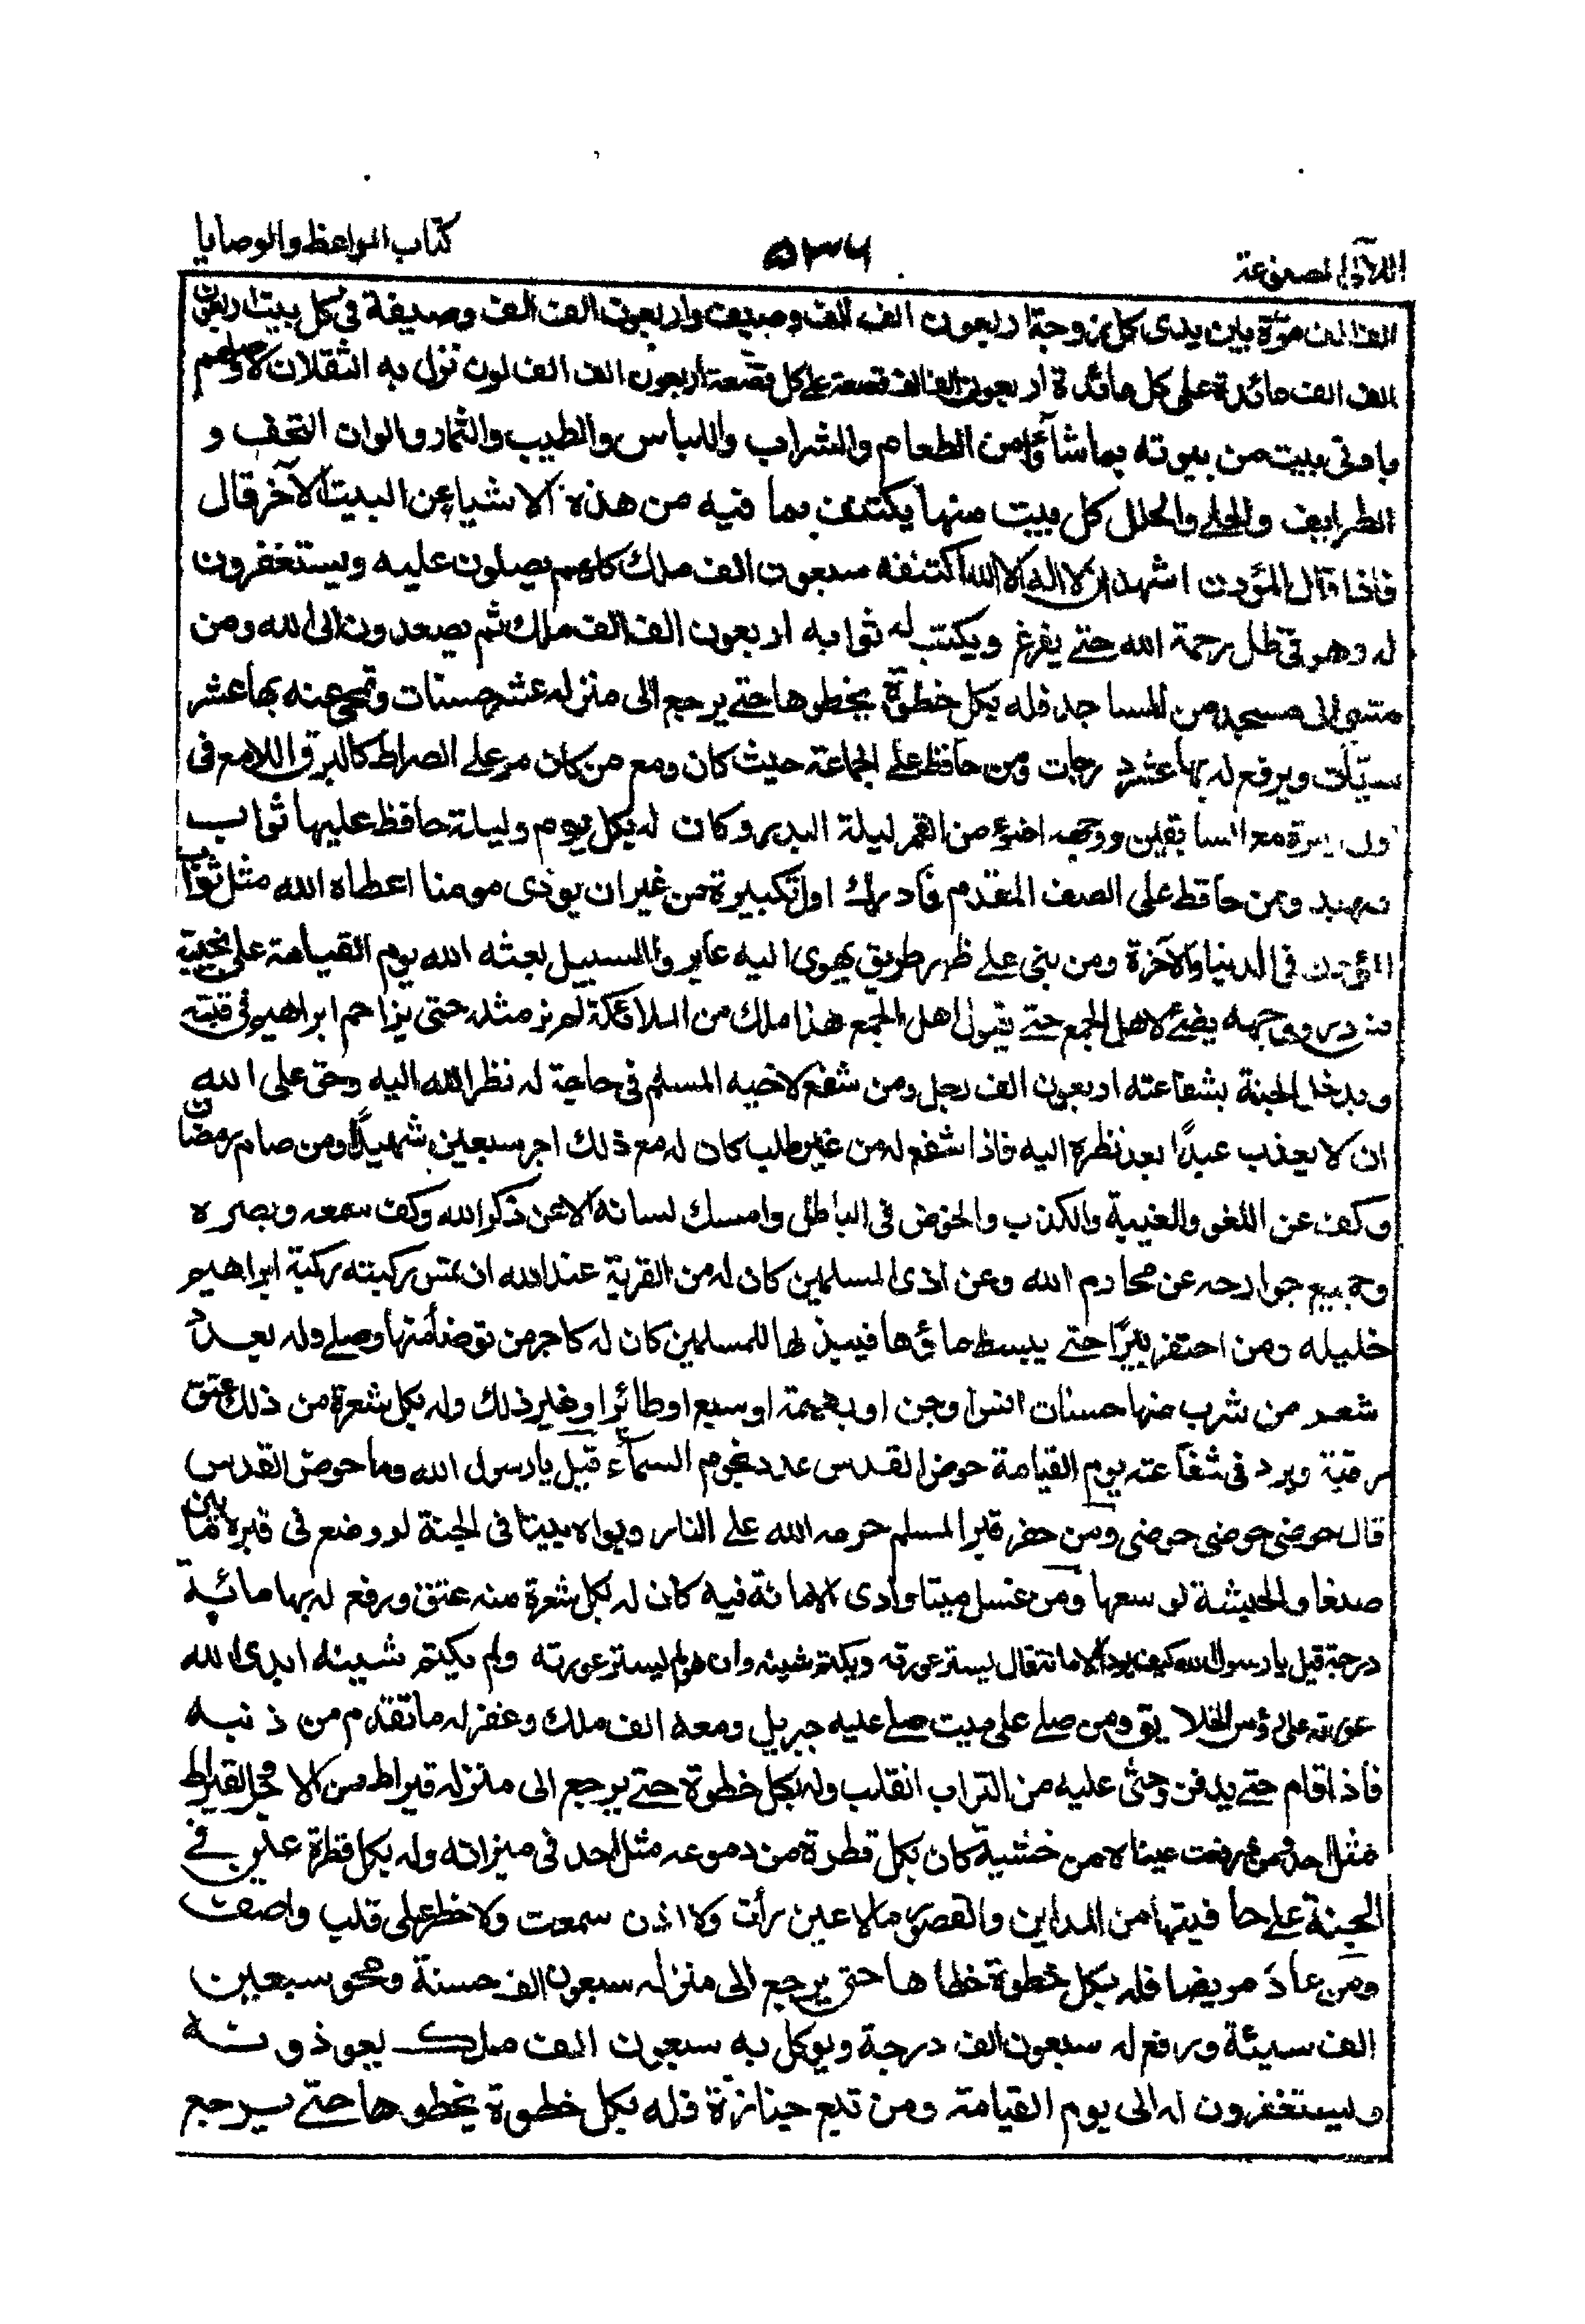 اللآلي المصنوعة ٥٣٦ كتاب المواعظ والوصايا
الف الف مرّة بين يدى كل زوجة اربعون الف الف وصيف واربعون الف الف وصيفة فى كل بيت اربعون
الف الف مائدة على كل مائدة اربعون الف الف قصعة على كل قصعة اربعون الف الف لون نزل به الثقلان لاوصلهم
بادنى بيت من بيوته بما شآؤا من الطعام والشراب واللباس والطيب والثمار والوان التحف و
الطرايف والحلى والحلل كل بيت منها يكتفى بما فيه من هذه الاشياء عن البيت الآخر قال
فاذا قال المؤذن اشهد ان لا اله الا الله اكتنفه سبعون الف ملك كلهم يصلون عليه ويستغفرون
له وهو فى ظل رحمة الله حتى يفرغ ويكتب له ثوابه اربعون الف الف ملك ثم يصعدون الى الله ومن
مشى الى مسجد من المساجد فله بكل خطوة يخطوها حتى يرجع الى منزله عشر حسنات وتمحى عنه بها عشر
سيّات ويرفع له بها عشر درجات ومن حافظ على الجماعة حيث كان ومع من كان مر على الصراط كالبرق اللامع فى
اول زمرة مع السابقين ووجهه اضوء من القمر ليلة البدر وكان له بكل يوم وليلة حافظ عليها ثواب
شهيد ومن حافظ على الصف المقدم فادرك اول تكبيرة من غير ان يوذى مومنا اعطاه الله مثل ثواب
المؤذن فى الدنيا والآخرة ومن بنى على ظهر طريق يهوى اليه عابروا السبيل بعثه الله يوم القيامة على نجيبة
من در ووجهه يضئ لاهل الجمع حتى يقول اهل الجمع هذا ملك من الملائكة لم ير مثله حتى يزاحم ابراهيم فى قبته
ويدخل الجنة بشفاعته اربعون الف رجل ومن شفع لاخيه المسلم فى حاجة له نظر الله اليه وحق على الله
ان لا يعذب عبدًا بعد نظره اليه فاذا شفع له من غير طلب كان له مع ذلك اجر سبعين شهيدًا ومن صام رمضان
وكف عن اللغو والغيبة والكذب والخوض فى الباطل وامسك لسانه الا عن ذكر الله وكف سمعه وبصره
وجميع جوارحه عن محارم الله وعن اذى المسلمين كان له من القربة عند الله ان تمس ركبته ركبة ابراهيم
خليله ومن احتفر بئرًا حتى يبسط ماؤها فيبذلها للمسلمين كان له كاجر من توضأ منها وصلى وله بعدد
شعر من شرب منها حسنات انس او جن او بهيمة او سبع او طائر او غير ذلك وله بكل شعرة من ذلك عتق
رقبة ويرد فى شفاعته يوم القيامة حوض القدس عدد نجوم السمآء قيل يا رسول الله وما حوض القدس
قال حوضى حوضى حوضى ومن حفر قبرا لمسلم حرمه الله على النار وبواه بيتا فى الجنة لو وضع فى قبره ما بين
صنعا والحبشة لوسعها ومن غسل ميتا وادى الامانة فيه كان له بكل شعرة منه عتق ورفع له بها مائة
درجة قيل يا رسول الله كيف يودى الامانة قال يستر عورته ويكتم شينه وان هو لم يستر عورته ولم يكتم شينه ابدى الله
عورته على رؤس الخلايق ومن صلى على ميت صلى عليه جبريل ومعه الف ملك وغفر له ما تقدم من ذنبه
فاذا اقام حتى يدفن وحثى عليه من التراب انقلب وله بكل خطوة حتى يرجع الى منزله قيراط من الاجر القيراط
مثل احد ومن ذرفت عيناه من خشية كان بكل قطرة من دموعه مثل احد فى ميزانه وله بكل قطرة عين فى
الجنة على حافيتها من المداين والقصور ما لا عين رأت ولا اذن سمعت ولا خطر على قلب واصف
ومن عاد مريضا فله بكل خطوة خطاها حتى يرجع الى منزله سبعون الف حسنة ومحو سبعين
الف سيئة ورفع له سبعون الف درجة ويوكل به سبعون الف ملك يعوذونه
ويستغفرون له الى يوم القيامة ومن تبع جنازة فله بكل خطوة يخطوها حتى يرجع